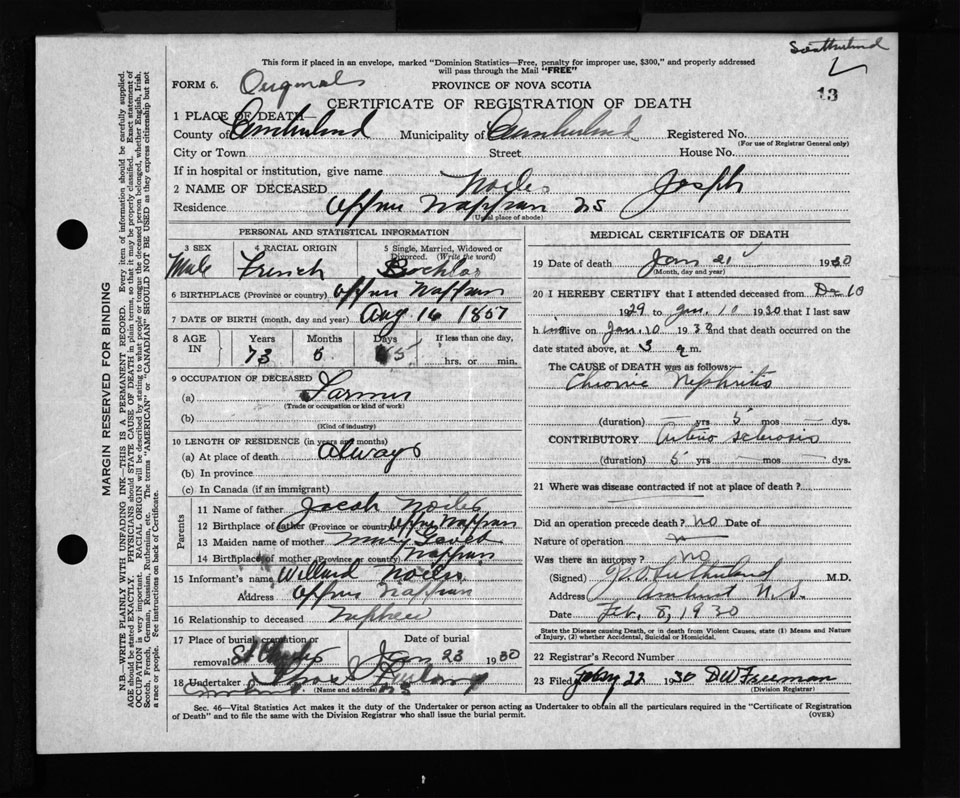 Sutherland
This form if placed in an envelope, marked "Dominion Statistics—Free, penalty for improper use, $300," and properly addressed
will pass through the Mail "FREE"
FORM 6.
PROVINCE OF NOVA SCOTIA
13
CERTIFICATE OF REGISTRATION OF DEATH
1 PLACE OF DEATH—
County of Cumberland Municipality of Cumberland Registered No.
(For use of Registrar General only)
City or Town Street House No.
If in hospital or institution, give name
2 NAME OF DECEASED Noiles Joseph
Residence Upper Nappan NS
(Usual place of abode)
PERSONAL AND STATISTICAL INFORMATION
3 SEX 4 RACIAL ORIGIN 5 Single, Married, Widowed or
Divorced. (Write the word)
Male French Bachlor
6 BIRTHPLACE (Province or country) Upper Nappan
7 DATE OF BIRTH (month, day and year) Aug 16 1857
8 AGE IN Years Months Days If less than one day,
73 5 5 hrs. or min.
9 OCCUPATION OF DECEASED
(a) Farmer
(Trade or occupation or kind of work)
(b)
(Kind of industry)
10 LENGTH OF RESIDENCE (in years and months)
(a) At place of death Always
(b) In province
(c) In Canada (if an immigrant)
Parents
11 Name of father Jacob Noiles
12 Birthplace of father (Province or country) Upper Nappan
13 Maiden name of mother Mary
14 Birthplace of mother (Province or country) Nappan
15 Informant's name Willard Noiles
Address Upper Nappan
16 Relationship to deceased Nephew
17 Place of burial, cremation or Date of burial
removal Jan 23 1930
18 Undertaker
(Name and address) NS
MEDICAL CERTIFICATE OF DEATH
19 Date of death Jan 21 1930
(Month, day and year)
20 I HEREBY CERTIFY that I attended deceased from De 10
1929 to Jan. 10 1930 that I last saw
him alive on Jan. 10 1930 and that death occurred on
date stated above, at 3 a m.
The CAUSE of DEATH was as follows:—
Chronic Nephritis
(duration) — yrs 5 mos — dys.
CONTRIBUTORY Arterio Sclerosis
(duration) 5 yrs — mos — dys.
21 Where was disease contracted if not at place of death?
Did an operation precede death? no Date of
Nature of operation
Was there an autopsy? no
(Signed) Sutherland M.D.
Address Amherst N.S.
Date Feb. 8, 1930
State the Disease causing Death, or in death from Violent Causes, state (1) Means and Nature
of Injury, (2) whether Accidental, Suicidal or Homicidal.
22 Registrar's Record Number
23 Filed 22 1930 DW Freeman
(Division Registrar)
Sec. 46—Vital Statistics Act makes it the duty of the Undertaker or person acting as Undertaker to obtain all the particulars required in the "Certificate of Registration
of Death" and to file the same with the Division Registrar who shall issue the burial permit.
(OVER)
MARGIN RESERVED FOR BINDING
N.B.—WRITE PLAINLY WITH UNFADING INK—THIS IS A PERMANENT RECORD. Every item of information should be carefully supplied.
AGE should be stated EXACTLY. PHYSICIANS should STATE CAUSE OF DEATH in plain terms, so that it may be properly classified. Exact statement of
OCCUPATION is very important. RACIAL ORIGIN will be described by stating to what people or tongue the deceased person belonged, whether English, Irish,
Scotch, French, German, Russian, Ruthenian, etc. The terms "AMERICAN" or "CANADIAN" SHOULD NOT BE USED as they express citizenship but not
a race or people. See instructions on back of Certificate.